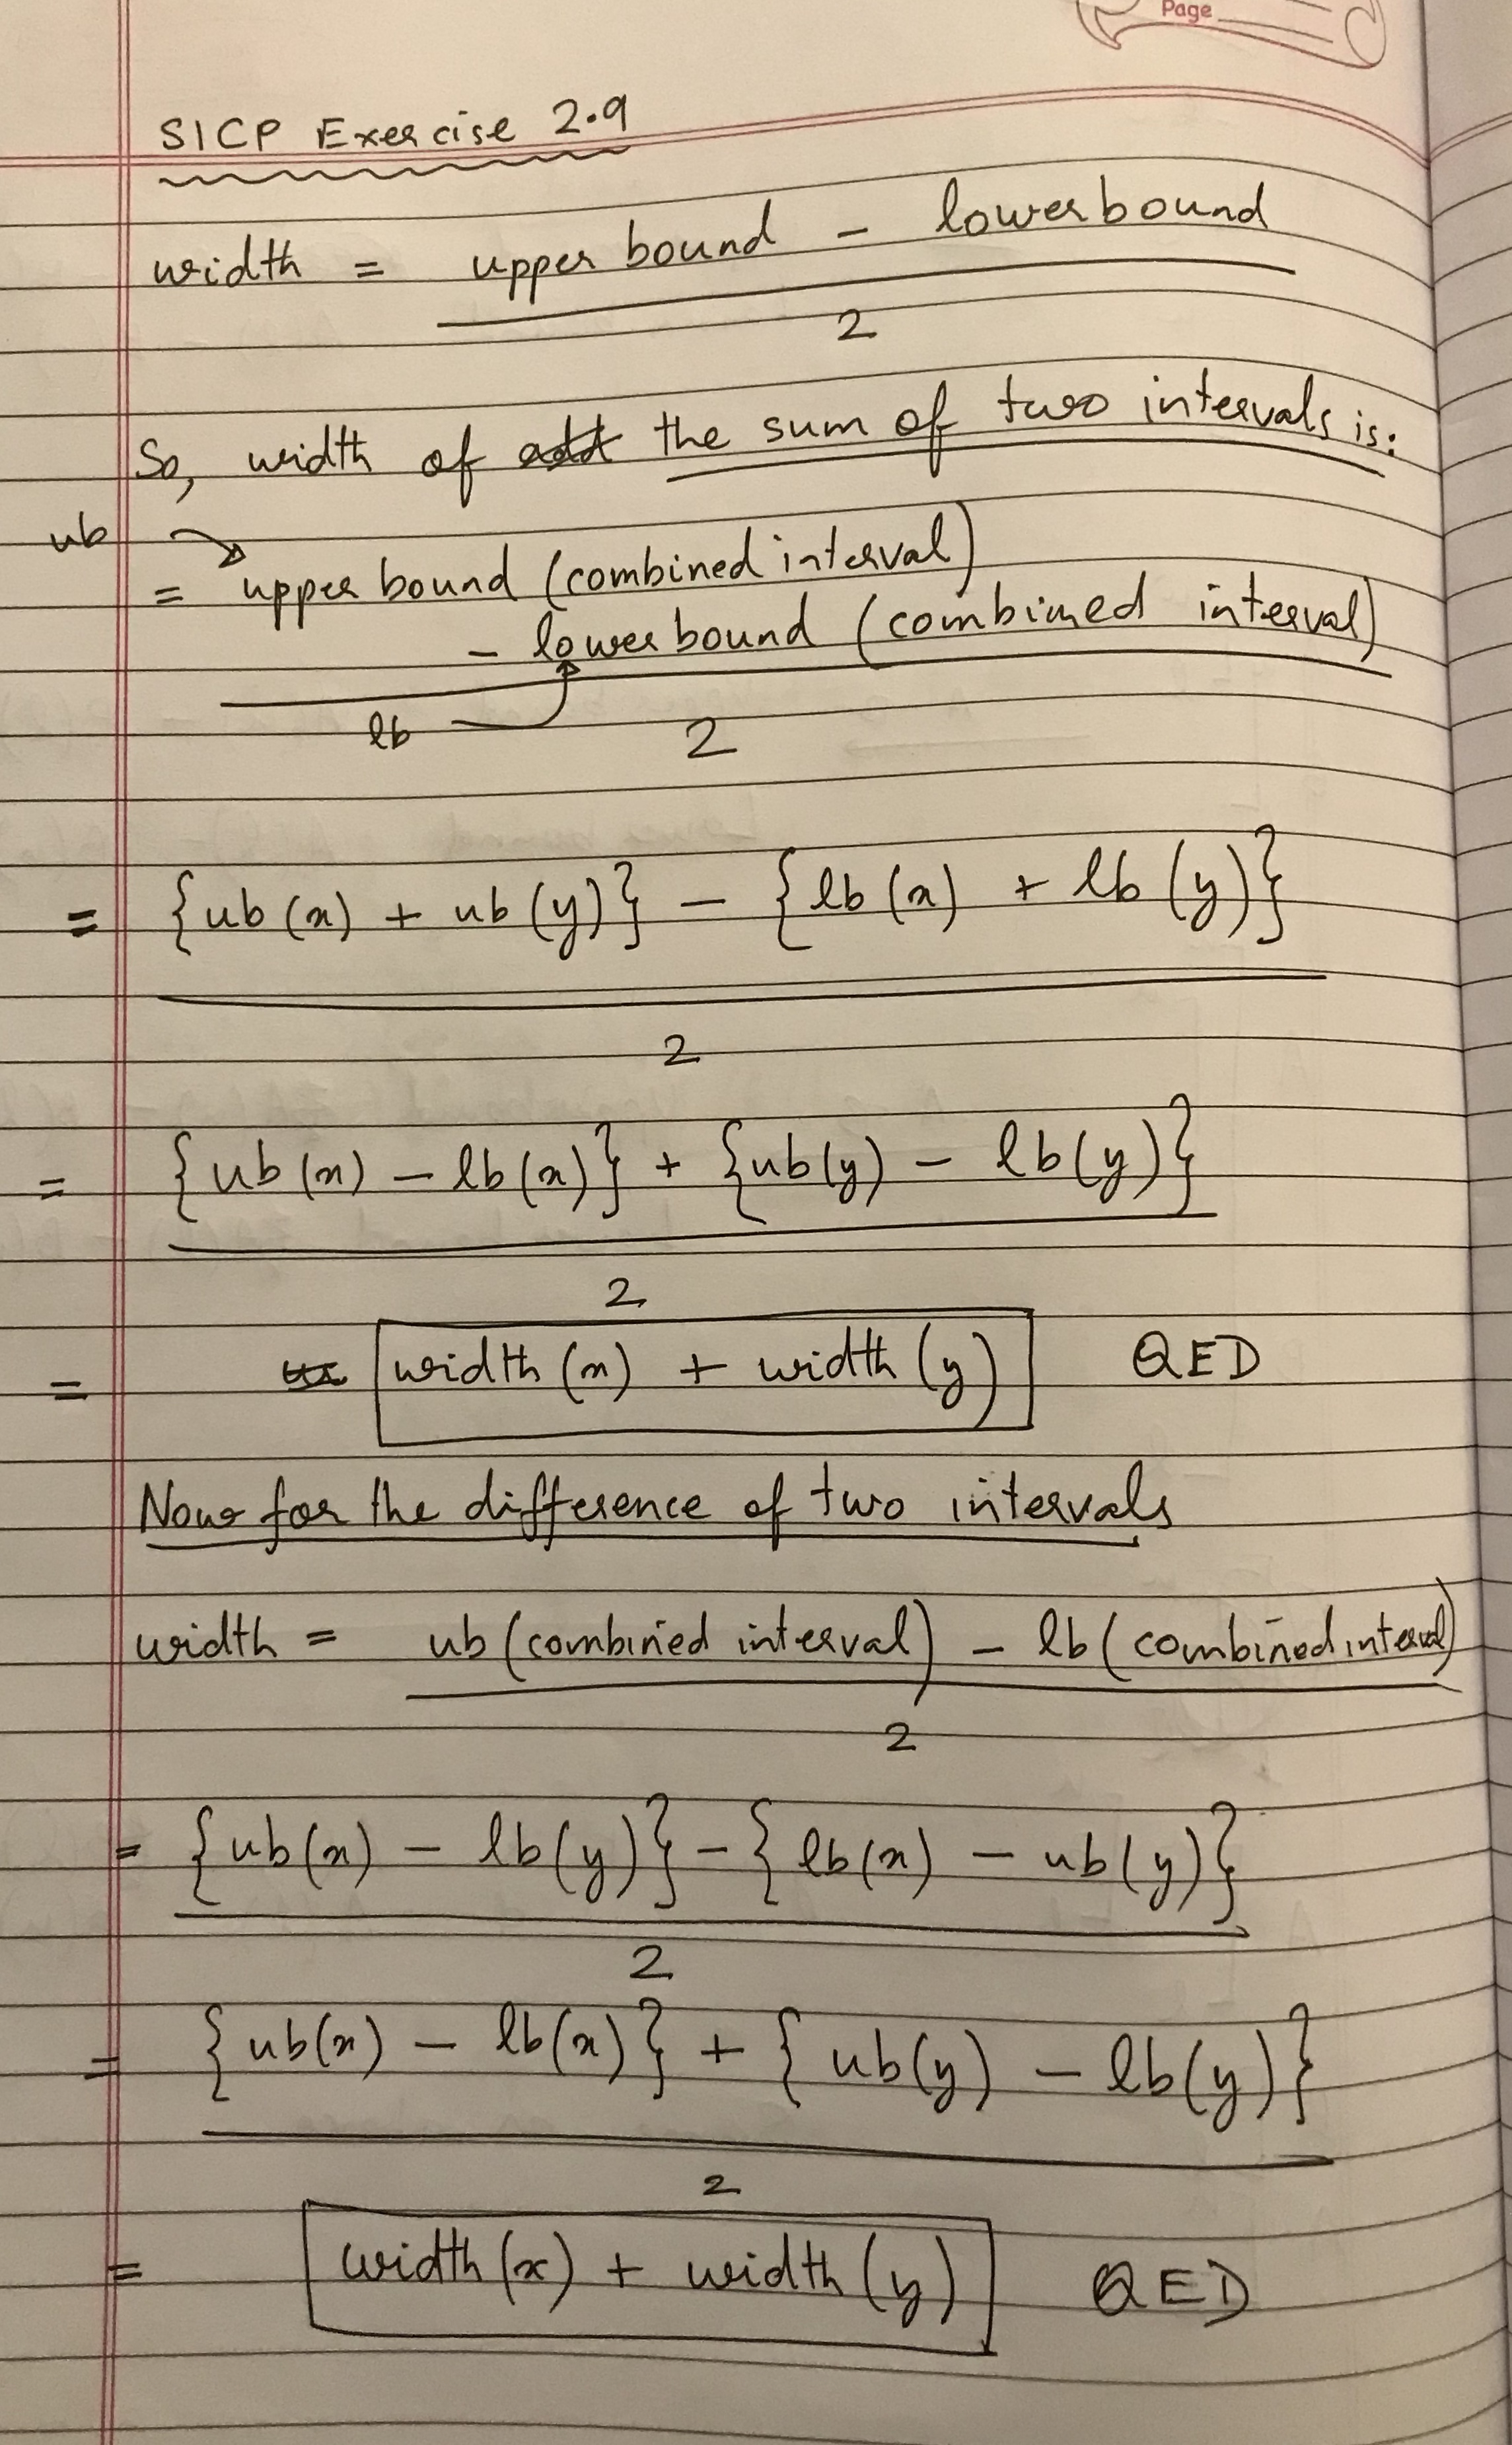 Page
SICP Exercise 2.9
width = upper bound - lowerbound
2
So, width of the sum of two intervals is:
ub
= upper bound (combined interval)
- lower bound (combined interval)
lb
2
= {ub(x) + ub(y)} - {lb(x) + lb(y)}
2
= {ub(x) - lb(x)} + {ub(y) - lb(y)}
2
= width(x) + width(y) QED
Now for the difference of two intervals
width = ub(combined interval) - lb(combined interval)
2
= {ub(x) - lb(y)} - {lb(x) - ub(y)}
2
= {ub(x) - lb(x)} + {ub(y) - lb(y)}
2
= width(x) + width(y) QED